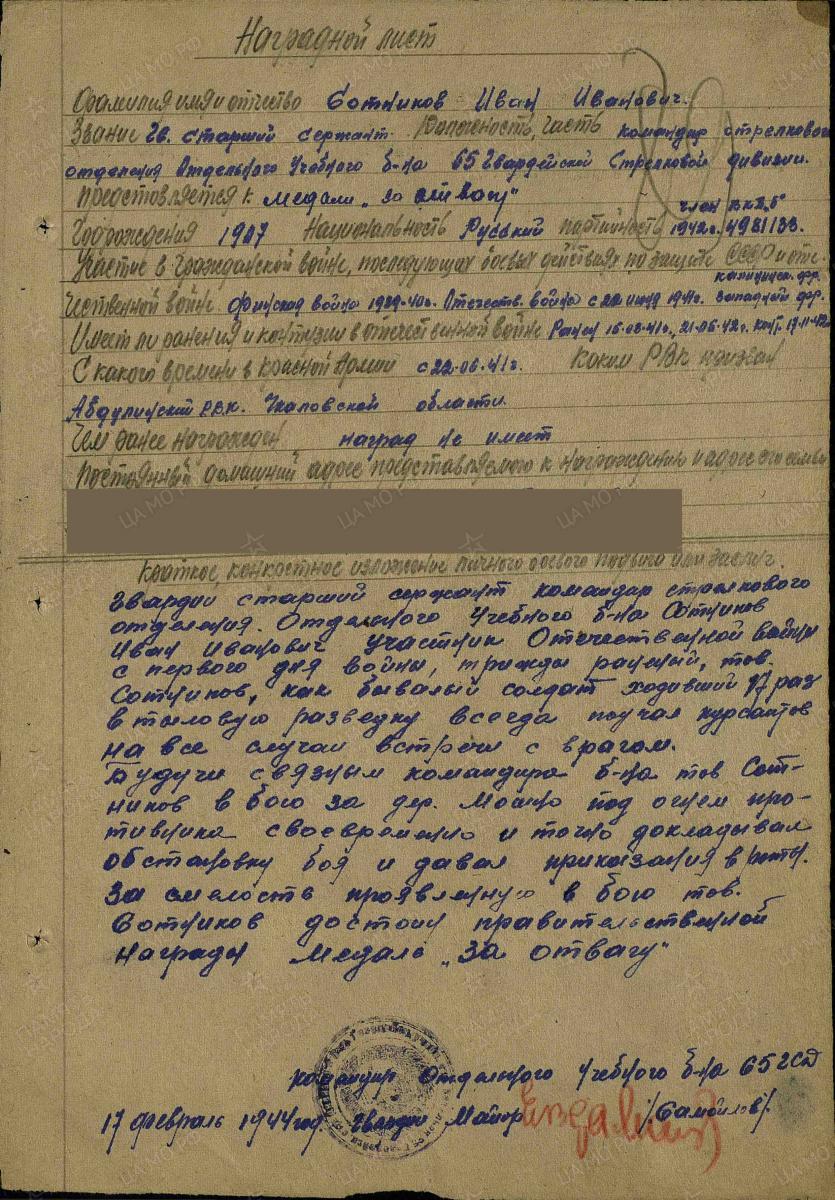 Наградной лист
Фамилия имя и отчество Сотников Иван Иванович.
Звание Гв. старший сержант. Должность, часть командир стрелкового
отделения Отдельного Учебного б-на 65 Гвардейской Стрелковой дивизии.
Представляется к медали „За отвагу"
Год рождения 1907 Национальность Русский партийность член ВКП/б 1942г. 4981133.
Участие в Гражданской войне, последующих боевых действиях по защите СССР и оте-
чественной войне Финская война 1939-40г. Отечеств. война с 22 июня 1941г. Калининск. фр. Западный фр.
Имеет ли ранения и контузии в отечественной войне Ранен 16-08-41г., 21-06-42г. конт. 17-11-42г.
С какого времени в Красной Армии с 22-06-41г. Каким РВК призван
Абдулинский РВК. Чкаловской области.
Чем ранее награжден наград не имеет
Постоянный домашний адрес представляемого к награждению и адрес его семьи
Краткое, конкретное изложение личного боевого подвига или заслуг.
Гвардии старший сержант командир стрелкового
отделения. Отдельного Учебного б-на Сотников
Иван Иванович участник Отечественной войны
с первого дня войны, трижды раненый, тов.
Сотников, как бывалый солдат ходивший 17 раз
в тыловую разведку всегда поучал курсантов
на все случаи встречи с врагом.
Будучи связным командира б-на тов Сот-
ников в бою за дер. под огнем про-
тивника своевременно и точно докладывал
обстановку боя и давал приказания в роты.
За смелость проявленную в бою тов.
Сотников достоин правительственной
награды Медаль „За отвагу"
Командир Отдельного Учебного б-на 65 гсд
17 февраль 1944 год. Гвардии Майор /Самойлов/.